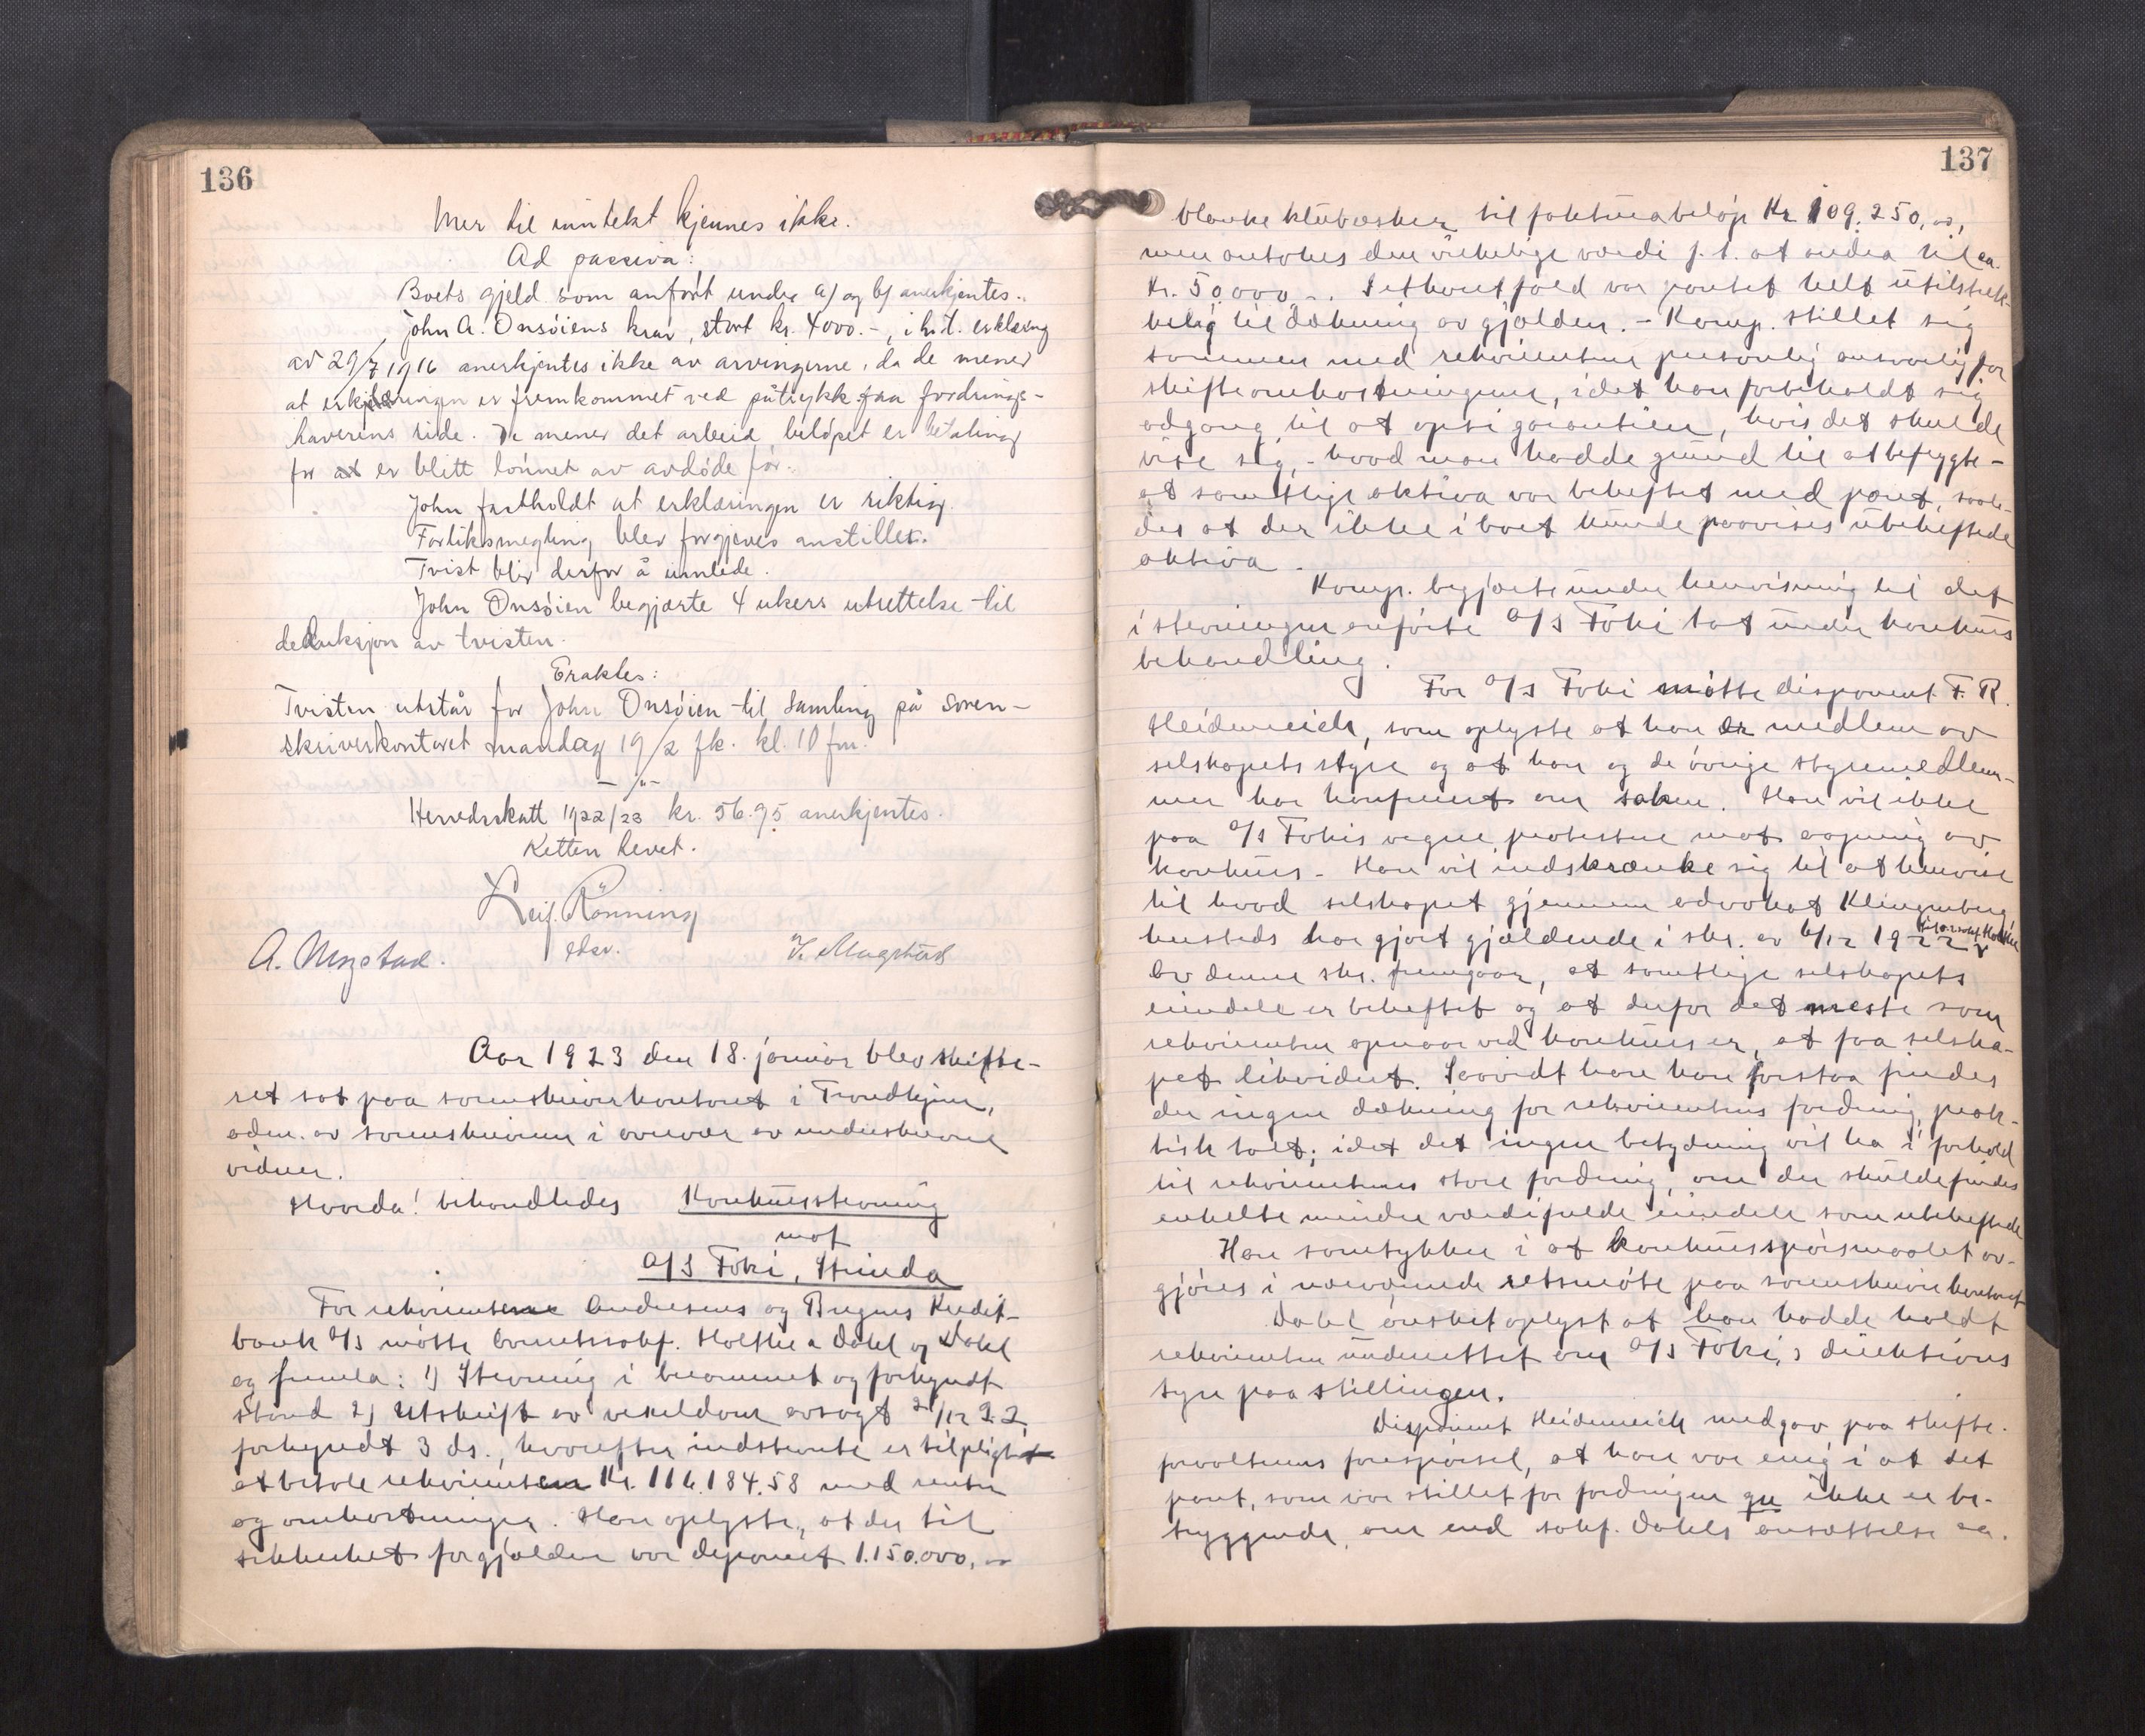 136
Mer til inntekt kjennes ikke.
Ad passiva:
Boets gjeld som anført under a/ og b/ anerkjentes.
John A. Onsöiens krav, stort kr. 4000.-, i h.t. erklæring
av 29/7 1916 anerkjentes ikke av arvingerne, da de mener
at erklæringen er fremkommet ved påtrykk fra fordrings-
haverens side. De mener det arbeid beløpet er betaling
for er blitt lønnet av avdøde før.
John fastholdt at erklæringen er riktig.
Forliksmegling blev forgjeves anstillet.
Tvist blir derfor å innlede.
John Onsöien begjærte 4 ukers utsettelse til
deduksjon av tvisten.
Eraktes:
Tvisten utstår for John Onsöien til samling på soren-
skriverkontoret mandag 19/2 fk. kl. 10 fm.
-"-
Herredsskatt 1922/23 kr. 56.95 anerkjentes.
Retten hevet.
Leif Rönning
edsv.
A. Mogstad.
K. Mogstad
Aar 1923 den 18. januar blev skifte-
ret sat paa sorenskriverkontoret i Trondhjem,
adm. av sorenskriveren i overvær av underskrevne
vidner.
Hvorda! behandledes Konkursstevning
mot
A/S Foki, Strinda
For rekvirenten Andresens og Bergens Kredit-
bank A/S møtte overretssakf. Holthe a Dahl og Dahl
og fremla: 1) Stevning i berammet og forkyndt
stand 2) Utskrift av vekseldom avsagt 2/12 22
forkyndt 3 ds., hvorefter indstevnte er tilpligtet
at betale rekvirenten Kr. 116.184.58 med renter
og omkostninger. Han oplyste, at der til
sikkerhet for gjælden var deponert 1.150.000, oo
137
blanke klubæsker til fakturabeløp Kr 109.250,oo,
men antokes den virkelige værdi f.t. at andra til ca.
Kr. 50000,-. I ethvert fald var pantet helt utilstræk-
kelig til dækning av gjælden. - Komp. stillet sig
sammen med rekvirenten personlig ansvarlig for
skifteomkostningene, idet han forbeholdt sig
adgang til at opsi garantien, hvis det skulde
vise sig, - hvad man hadde grund til at befrygte -
at samtlige aktiva var beheftet med pant, saale-
des at der ikke i boet kunde paavises ubeheftede
aktiva.
Komp. begjærte under henvisning til det
i stevningen anførte A/S Foki tat under konkurs
behandling.
For A/S Foki møtte disponent F. R.
Heidenreich, som oplyste at han er medlem av
selskapets styre og at han og de øvrige styremedlem-
mer har konferert om saken. Han vil ikke
paa A/S Fokis vegne protestere mot aapning av
konkurs. Han vil indskrænke sig til at henvise
til hvad selskapet gjennem advokat Klingenberg
husteds har gjort gjældende i skr. av 6/12 1922 til o.r.sakf. Holthe
Av denne skr. fremgaar, at samtlige selskapets
eiendele er beheftet og at derfor det meste som
rekvirenten opnaar ved konkurs er, at faa selska-
pet likvidert. Saavidt han kan forstaa findes
der ingen dækning for rekvirentens fordring, prak-
tisk talt; idet det ingen betydning vil ha i forhold
til rekvirentens store fordring, om der skulde findes
enkelte mindre værdifulde eiendele som ubeheftede
Han samtykker i at konkursspørsmaalet av-
gjøres i nærværende retsmøte paa sorenskriverkontoret
Dahl ønsket oplyst at han hadde holdt
rekvirenten underrettet om A/S Foki,s direktions
syn paa stillingen.
Disponent Heidenreich medgav paa skifte-
forvalterens forespørsel, at han var enig i at det
pant, som var stillet for fordringen gn ikke er be-
tryggende, om end sakf. Dahls ansættelse ca.